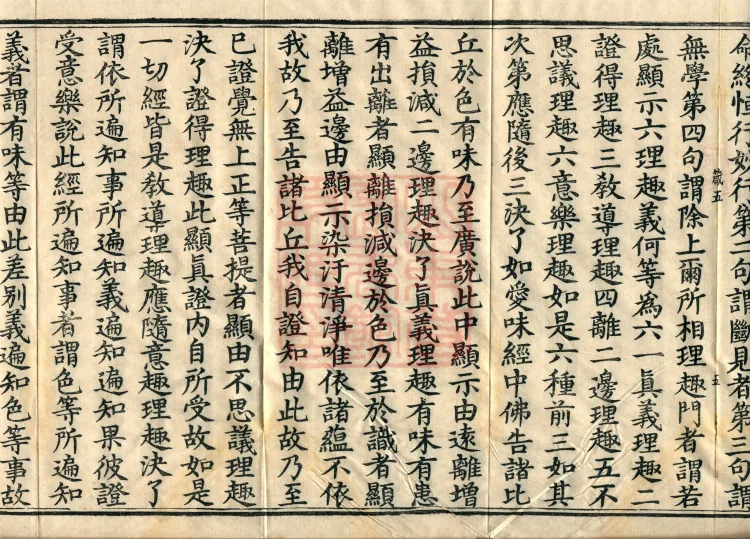 命終恒行妙行第二句謂斷見者第三句謂
無學第四句謂除上爾所相理趣門者謂若
處顯示六理趣義何等為六一眞義理趣二
證得理趣三教導理趣四離二邊理趣五不
思議理趣六意樂理趣如是六種前三如其
次第應隨後三決了如愛味經中佛告諸比
丘於色有味乃至廣說此中顯示由遠離增
益損減二邊理趣決了眞義理趣有味有患
有出離者顯離損減邊於色乃至於識者顯
離增益邊由顯示染汙清淨唯依諸蘊不依
我故乃至告諸比丘我自證知由此故乃至
已證覺無上正等菩提者顯由不思議理趣
決了證得理趣此顯眞證內自所受故如是
一切經皆是教導理趣應隨意趣理趣決了
謂依所遍知事所遍知義遍知遍知果彼證
受意樂說此經所遍知事者謂色等所遍知
義者謂有味等由此差別義遍知色等事故
箴五
五